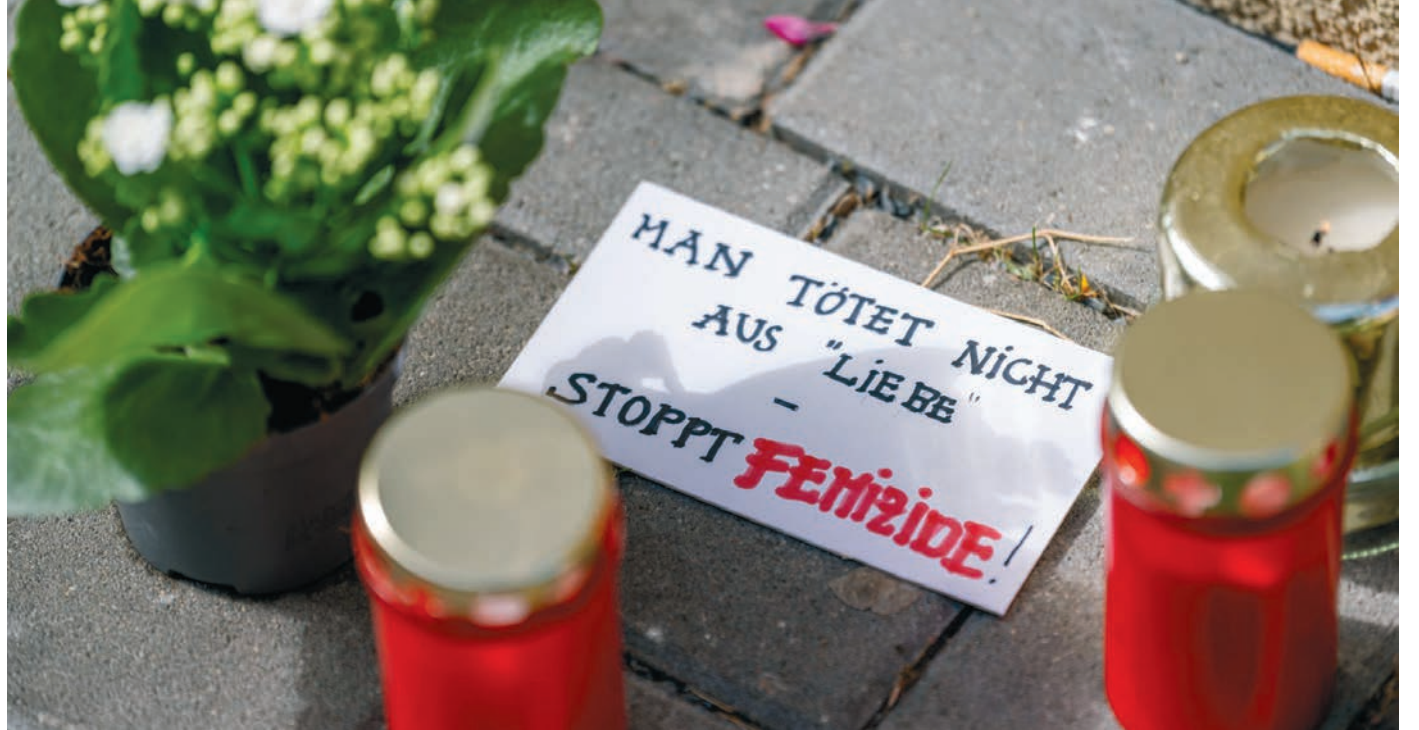 MAN TÖTET NICHT
AUS "LIEBE"
-
STOPPT FEMIZIDE!